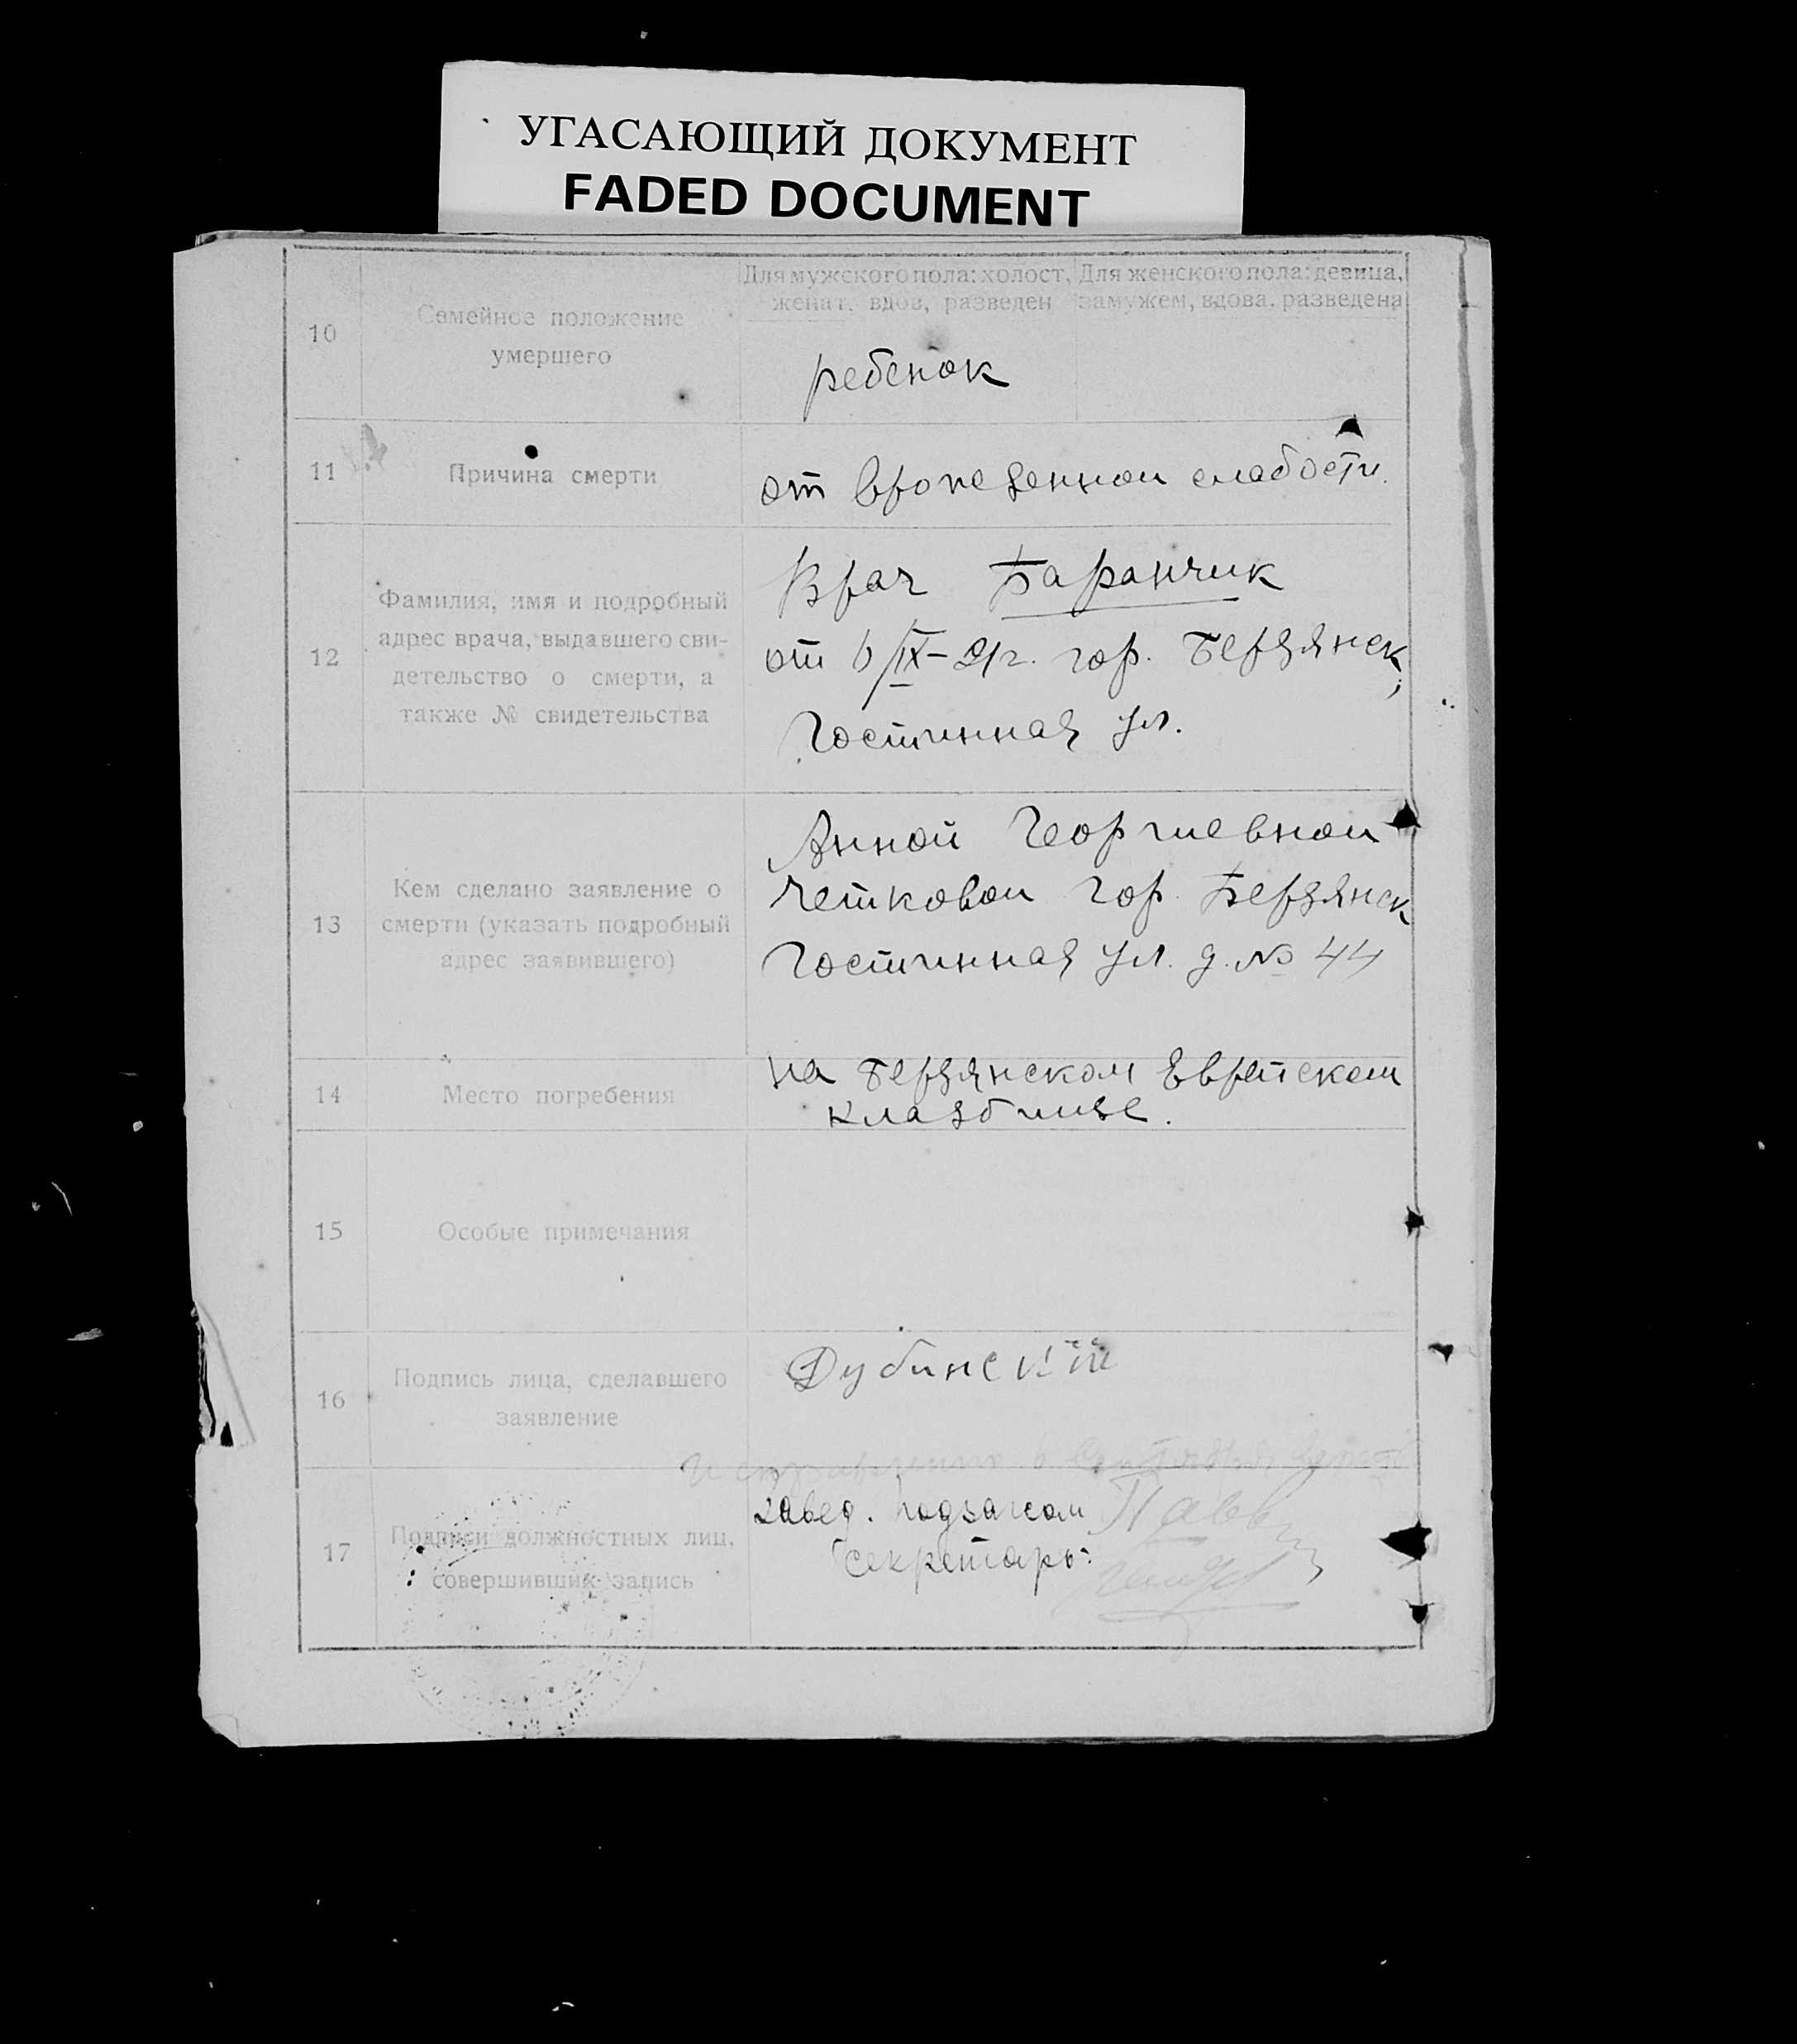 УГАСАЮЩИЙ ДОКУМЕНТ
FADED DOCUMENT
10
Семейное положение
умершего
Для мужского пола: холост,
женат, вдов, разведен
Для женского пола: девица,
замужем, вдова, разведена
ребенок
11
Причина смерти
от врожденной слабости.
12
Фамилия, имя и подробный
адрес врача, выдавшего сви-
детельство о смерти, а
также № свидетельства
Врач Баранчик
от 6/IX-21г. гор. Бердянск,
Гостинная ул.
13
Кем сделано заявление о
смерти (указать подробный
адрес заявившего)
Анной Георгиевной
Четковой гор. Бердянск
Гостинная ул. д. № 44
14
Место погребения
на Бердянском Еврейском
кладбище.
15
Особые примечания
16
Подпись лица, сделавшего
заявление
Дубинский
17
Подписи должностных лиц,
совершивших запись
Завед. подзагсом
Секретарь: